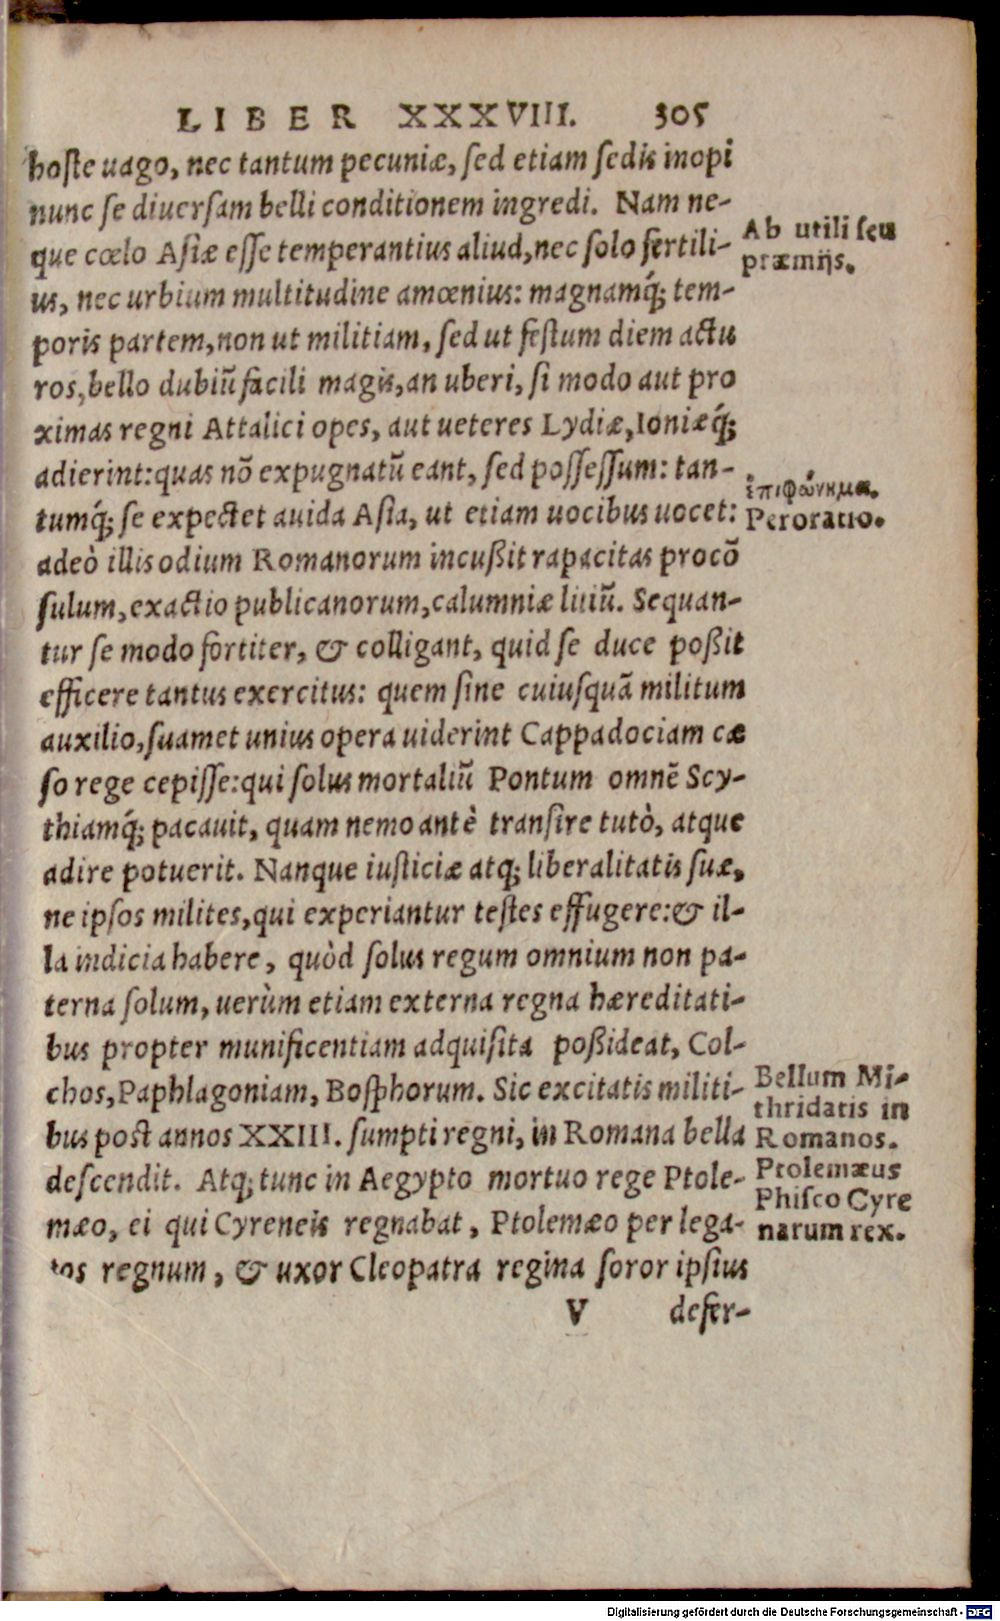 LIBER XXXVIII. 305
hoſte uago, nec tantum pecuniæ, ſed etiam ſedis inopi
nunc ſe diuerſam belli conditionem ingredi. Nam ne-
que cœlo Aſiæ eſſe temperantius aliud, nec ſolo fertili-
us, nec urbium multitudine amœnius: magnamq́; tem-
poris partem, non ut militiam, ſed ut feſtum diem actu
ros, bello dubiũ facili magis, an uberi, ſi modo aut pro
ximas regni Attalici opes, aut ueteres Lydiæ, Ioniæq́;
adierint: quas nõ expugnatũ eant, ſed poſſeſſum: tan-
tumq́; ſe expectet auida Aſia, ut etiam uocibus uocet:
adeò illis odium Romanorum incußit rapacitas procõ
ſulum, exactio publicanorum, calumniæ litiũ. Sequan-
tur ſe modo fortiter, & colligant, quid ſe duce poßit
efficere tantus exercitus: quem ſine cuiuſquã militum
auxilio, ſuamet unius opera uiderint Cappadociam cæ
ſo rege cepiſſe: qui ſolus mortaliũ Pontum omnẽ Scy-
thiamq́; pacauit, quam nemo antè tranſire tutò, atque
adire potuerit. Nanque iuſticiæ atq; liberalitatis ſuæ,
ne ipſos milites, qui experiantur teſtes effugere: & il-
la indicia habere, quòd ſolus regum omnium non pa-
terna ſolum, uerùm etiam externa regna hæreditati-
bus propter munificentiam adquiſita poßideat, Col-
chos, Paphlagoniam, Boſphorum. Sic excitatis militi-
bus poſt annos XXIII. ſumpti regni, in Romana bella
deſcendit. Atq; tunc in Aegypto mortuo rege Ptole-
mæo, ei qui Cyreneis regnabat, Ptolemæo per lega-
tos regnum, & uxor Cleopatra regina ſoror ipſius
V defer-
Ab utili ſeu
præmijs.
ἐπιφώνημα.
Peroratio.
Bellum Mi-
thridatis in
Romanos.
Ptolemæus
Phiſco Cyre
narum rex.
Digitalisierung gefördert durch die Deutsche Forschungsgemeinschaft - DFG